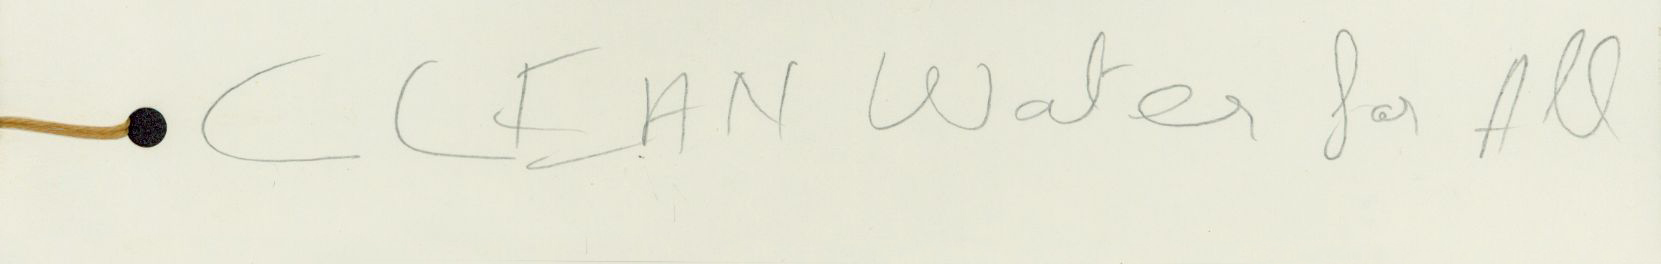 CLEAN Water for All